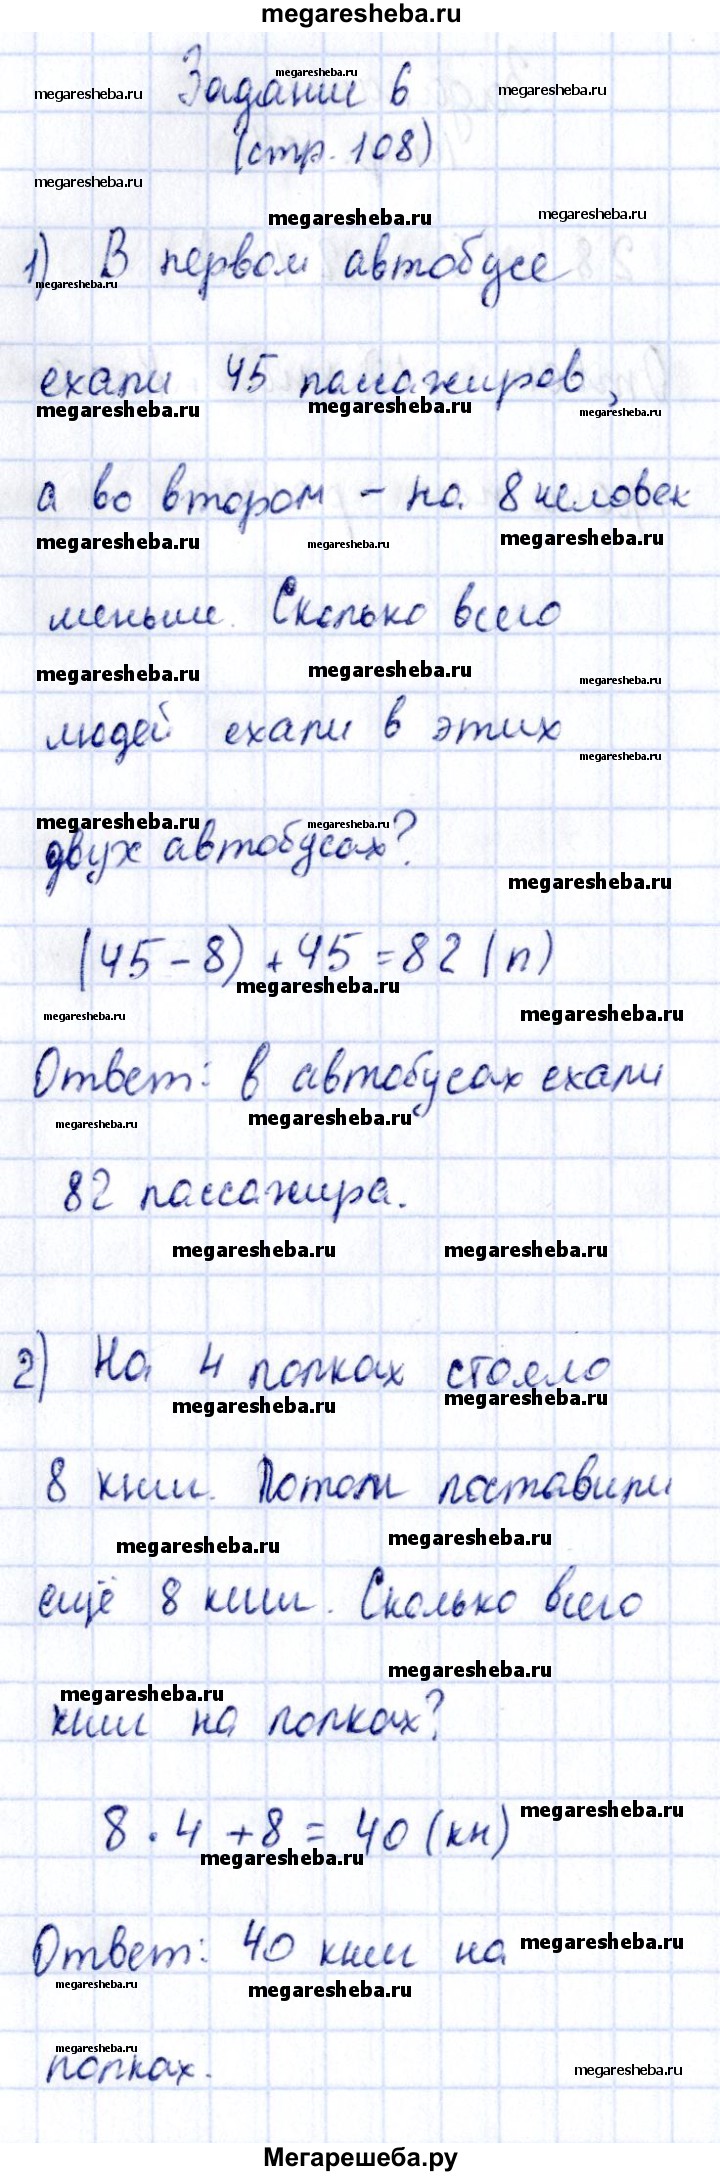 megaresheba.ru
Задание 6
(стр. 108)
1) В первом автобусе
ехали 45 пассажиров,
а во втором - на 8 человек
меньше. Сколько всего
людей ехали в этих
двух автобусах?
(45-8)+45=82(п)
Ответ: в автобусах ехали
82 пассажира.
2) На 4 полках стояло
8 книг. Потом поставили
ещё 8 книг. Сколько всего
книг на полках?
8·4+8=40(кн)
Ответ: 40 книг на
полках.
Мегарешеба.ру